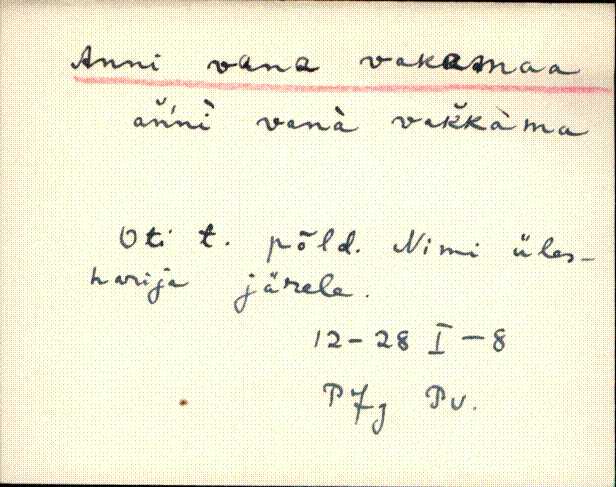 Anni vana vakamaa
ǎn̄nì vanà vak̆kàma
Oti t. põld. Nimi üles-
harija järele.
12-28 I-8
Põlg Pv.